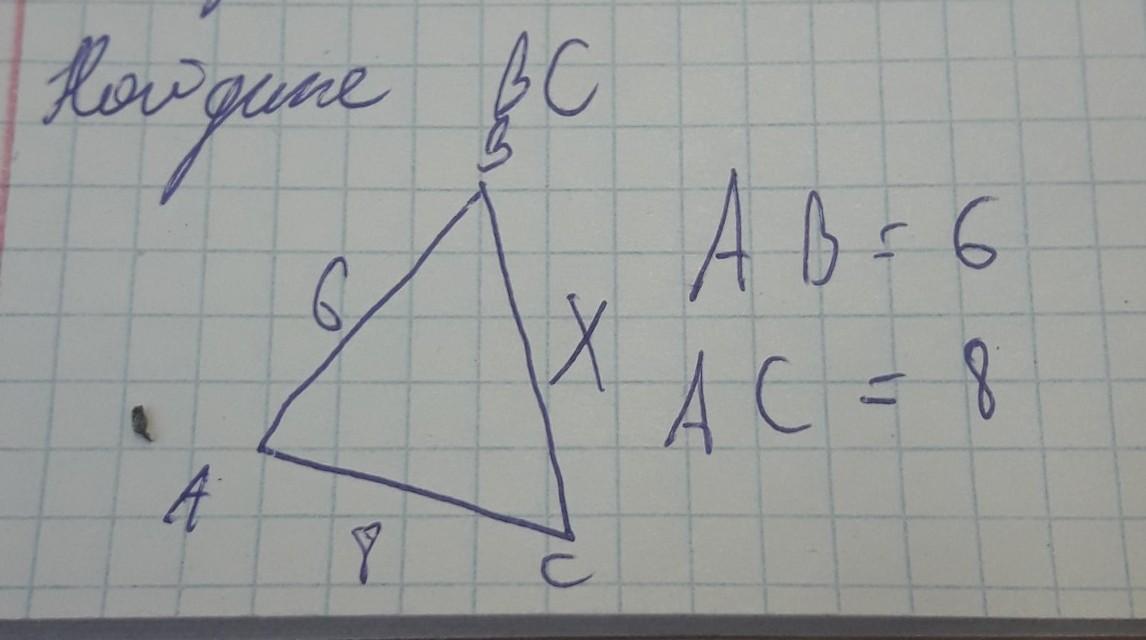 Найдите BC
B
6
X
A
8
C
AB = 6
AC = 8